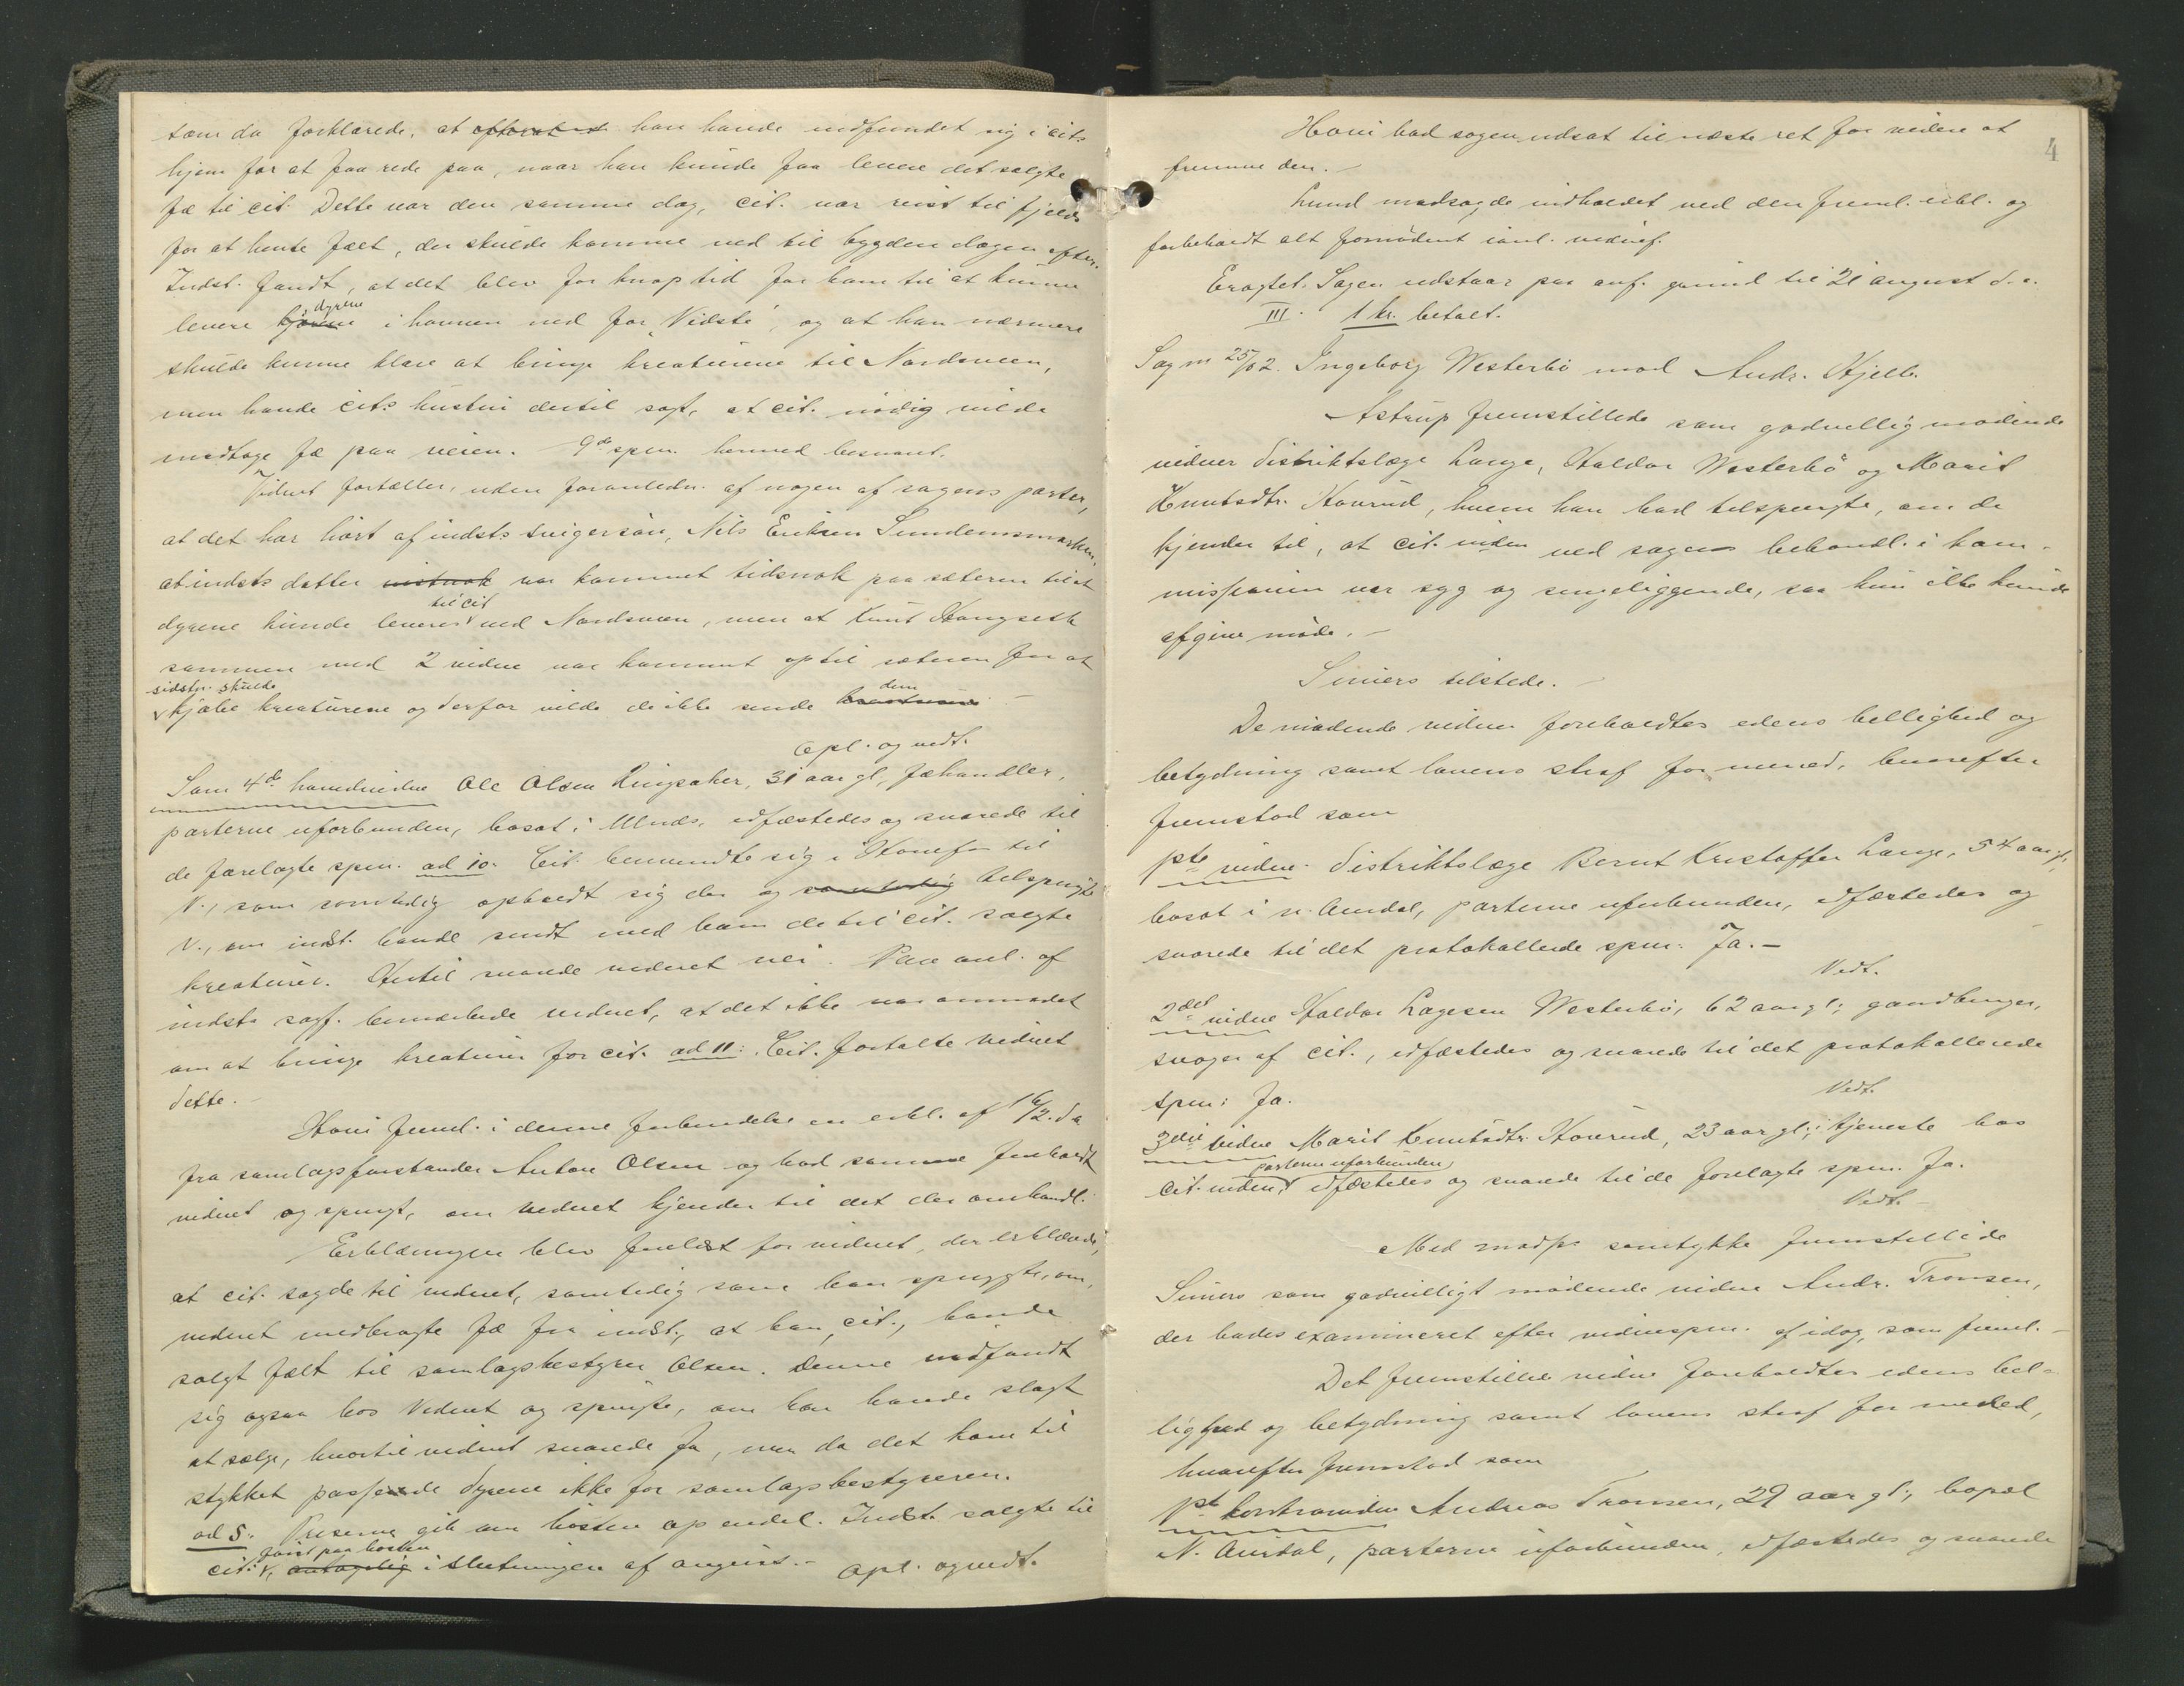 som da forklarede, at han havde indfundet sig i cits
hjem for at faa rede paa, naar han kunde faa levere det solgte
fæ til cit. Dette var den samme dag, cit. var reist til fjelds
for at hente fæet, der skulde komme ned til bygden dagen efter.
Indst. fandt, at det blev for knap tid for ham til at kunne
levere dyrene i havnen ved for "Vidste", og at han nærmere
skulde kunne klare at bringe kreaturene til Nordsveen,
men havde cits hustru dertil sagt, at cit. nødig vilde
modtage fæ paa veien. 9de spm. hermed besvaret.
Vidnet fortæller, uden foranledn. af nogen af sagens parter,
at det har hørt af indsts svigersøn, Nils Eriksen Sundemsmarken,
at indsts datter vistnok var kommet tidsnok paa sæteren til at
dyrene kunde leveres til cit ved Nordsveen, men at Knut Kongseth
sammen med 2 vidne var kommet op til sæteren for at
sidstn. skulde
kjøbe kreaturene og derfor vilde de ikke sende dem kreaturene –
Opl. og vedt.
Som 4de hovedvidne Ole Olsen Ringsaker, 31 aar gl, fæhandler,
parterne uforbunden, bosat i Ulnes, edfæstedes og svarede til
de forelagte spm. ad 10. Cit. henvendte sig i Hønefos til
V., som samtidig opholdt sig der og samtidig tilspurgte
V., om indst. havde sendt med ham de til cit. solgte
kreaturer. Hertil svarede vidnet nei. Paa anl. af
indsts sagf. bemærkede vidnet, at det ikke var anmodet
om at bringe kreaturer for cit. ad 11: Cit. fortalte vidnet
dette.
Hovi freml. i denne forbindelse en erkl. af 16/2 d.a
fra samlagsforstander Anton Olsen og bad samme foreholdt
vidnet og spurgt, om vidnet kjender til det der omhandl.
Erklæringen blev forelæst for vidnet, der erklærede,
at cit. sagde til vidnet, samtidig som han spurgte, om
vidnet medbragte fæ fra indst., at han, cit., havde
solgt fæet til samlagsbestyrer Olsen. Denne indfandt
sig ogsaa hos Vidnet og spurgte, om han havde slagt
at sælge, hvortil vidnet svarede Ja, men da det kom til
stykket passede dyrene ikke for samlagsbestyreren.
ad 5. Priserne gik om høsten op endel. Indst. solgte til
først paa høsten
cit. antagelig i slutningen af august. – Opl. og vedt.
4
Hovi bad sagen udsat til næste ret for videre at
fremme den. –
Lund modsagde indholdet ved den freml. erkl. og
forbeholdt alt fornødent ianl. vidnef.
Eragtet. Sagen udstaar paa anf. grund til 21 august d.a.
III. 1 kr. betalt.
Sag nr 25/02. Ingeborg Westerbø mod Andr. Kjelb.
Astrup fremstillede som godvillig mødende
vidner distriktslæge Lange, Haldor Westerbø og Marit
Knutsdtr. Hovrud, hvem han bad tilspurgte, om de
kjender til, at cit.inden ved sagens behandl. i kom-
missionen var syg og sengeliggende, saa hun ikke kunde
afgive møde. –
Siniers tilstede. –
De mødende vidner foreholdtes edens hellighed og
betydning samt lovens straf for mened, hvorefter
fremstod som
1ste vidne. Distriktslæge Bernt Kristoffer Lange, 54 aar gl,
bosat i n. Aurdal, parterne uforbunden, edfæstedes og
svarede til det protokollerede spm: Ja. –
Vedt.
2det vidne Haldor Lagesen Westerbø, 62 aar gl; gaardbruger,
svoger af cit., edfæstedes og svarede til det protokollerede
spm: Ja. Vedt.
3die vidne Marit Knutsdtr. Hovrud, 23 aar gl; i tjeneste hos
parterne uforbunden,
cit.inden, edfæstedes og svarede til de forelagte spm. Ja.
Vedt. –
Med modp. samtykke fremstillede
Siniers som godvilligt mødende vidne Andr. Tronsen,
der bades examineret efter vidnespm. af idag, som freml. –
Det fremstillede vidne foreholdtes edens hel-
lighed og betydning samt lovens straf for mened,
hvorefter fremstod som
1ste kontravidne Andreas Tronsen, 29 aar gl; bopæl
N. Aurdal, parterne uforbunden, edfæstedes og svarede